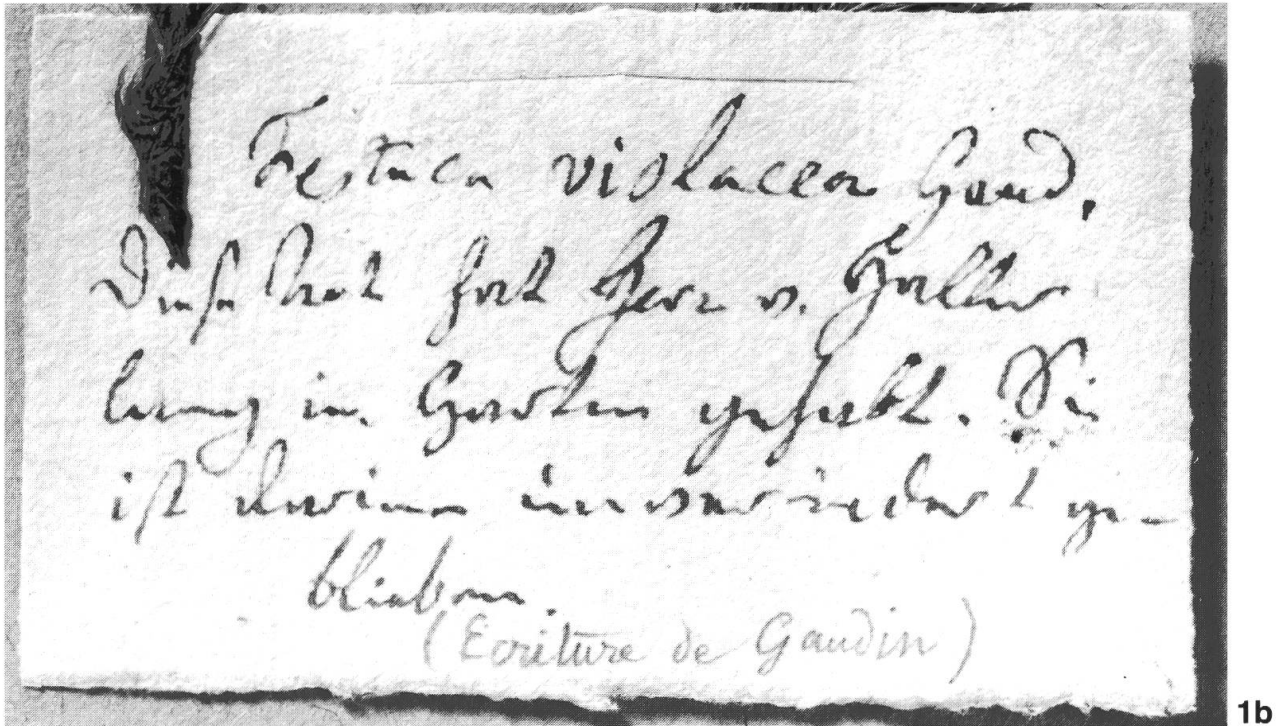 Festuca violacea Gaud.
Diese Art hat Herr v. Haller
lang im Garten gehabt. Sie
ist darinn unverändert ge-
blieben.
(Ecriture de Gaudin)
1b